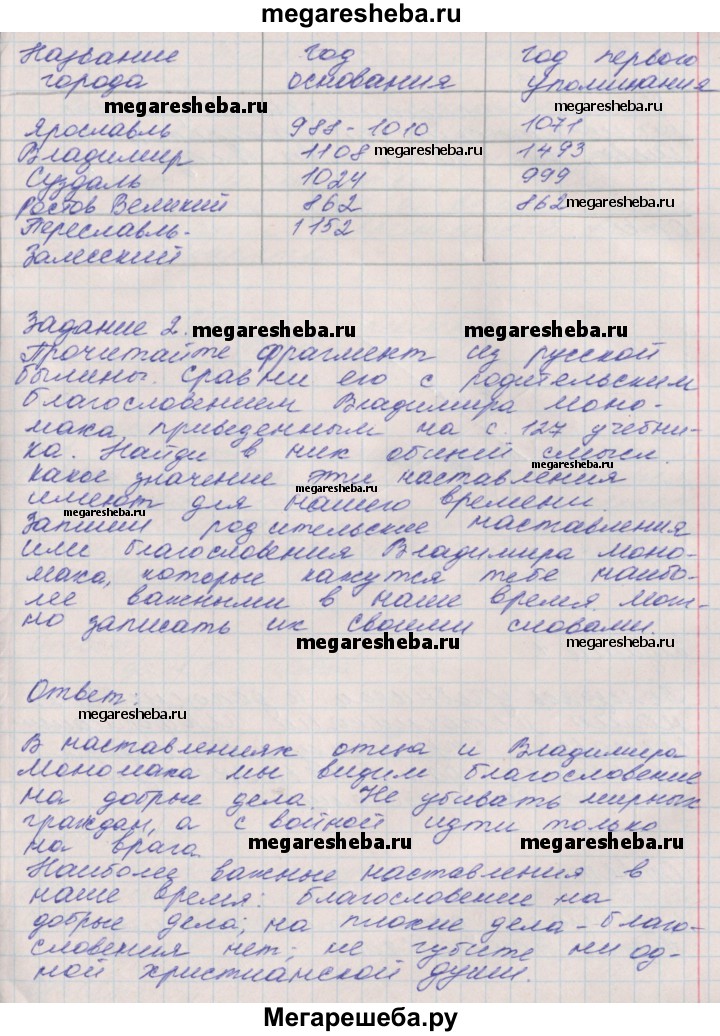 megaresheba.ru
Название год год первого
города основания упоминания
megaresheba.ru megaresheba.ru
Ярославль 988-1010 1071
Владимир 1108 megaresheba.ru 1493
Суздаль 1024 999
Ростов Великий 862 862 megaresheba.ru
Переславль- 1152
Залесский
Задание 2. megaresheba.ru megaresheba.ru
Прочитайте фрагмент из русской
былины. Сравни его с родительским
благословением Владимира Моно-
маха, приведенным на с. 127 учебни-
ка. Найди в них общий смысл.
megaresheba.ru
Какое значение эти наставления
megaresheba.ru
имеют для нашего времени.
megaresheba.ru
Запиши родительские наставления
или благословения Владимира Моно-
маха, которые кажутся тебе наибо-
лее важными в наше время. Мож-
но записать их своими словами.
megaresheba.ru megaresheba.ru
Ответ:
megaresheba.ru
В наставлениях отца и Владимира
Мономаха мы видим благословение
на добрые дела. Не убивать мирных
граждан, а с войной идти только
на врага. megaresheba.ru megaresheba.ru
Наиболее важные наставления в
наше время: благословение на
добрые дела; на плохие дела - благо-
словения нет; не губите ни од-
ной христианской души.
Мегарешеба.ру